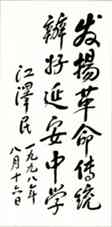 发扬革命传统
办好延安中学
江泽民
一九九八年
八月十六日